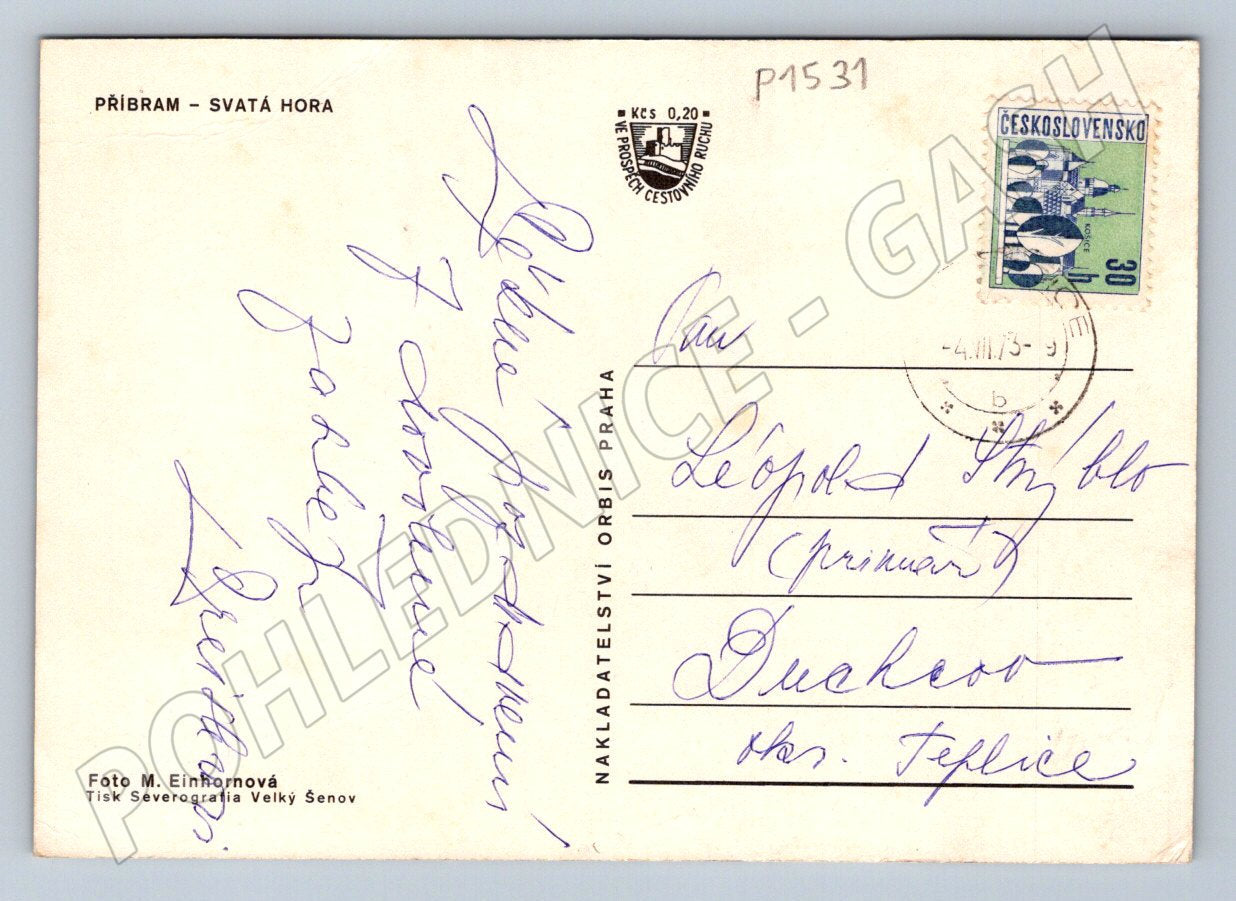 PŘÍBRAM – SVATÁ HORA
P1531
Kčs 0,20
VE PROSPĚCH CESTOVNÍHO RUCHU
ČESKOSLOVENSKO
KOŠICE
30 h
-4.VIII.73-9
b
Srdečné pozdravení
z dovolené
Pan
Leopold Strýblo
(primář)
Duchcov
okr. Teplice
NAKLADATELSTVÍ ORBIS PRAHA
Foto M. Einhornová
Tisk Severografia Velký Šenov
POHLEDNICE - GASH